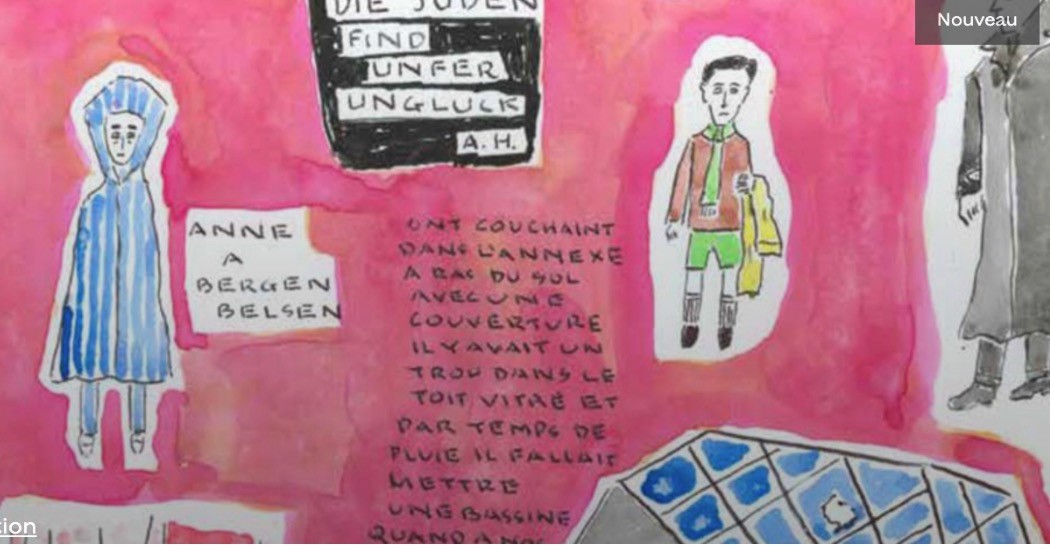 Nouveau
DIE JUDEN
FIND
UNFER
UNGLUCK
A.H.
ANNE
A
BERGEN
BELSEN
ONT COUCHAINT
DANS L'ANNEXE
A RAS DU SOL
AVEC UNE
COUVERTURE
IL Y AVAIT UN
TROU DANS LE
TOIT VITRÉ ET
PAR TEMPS DE
PLUIE IL FALLAIT
METTRE
UNE BASSINE
QUAND
tion